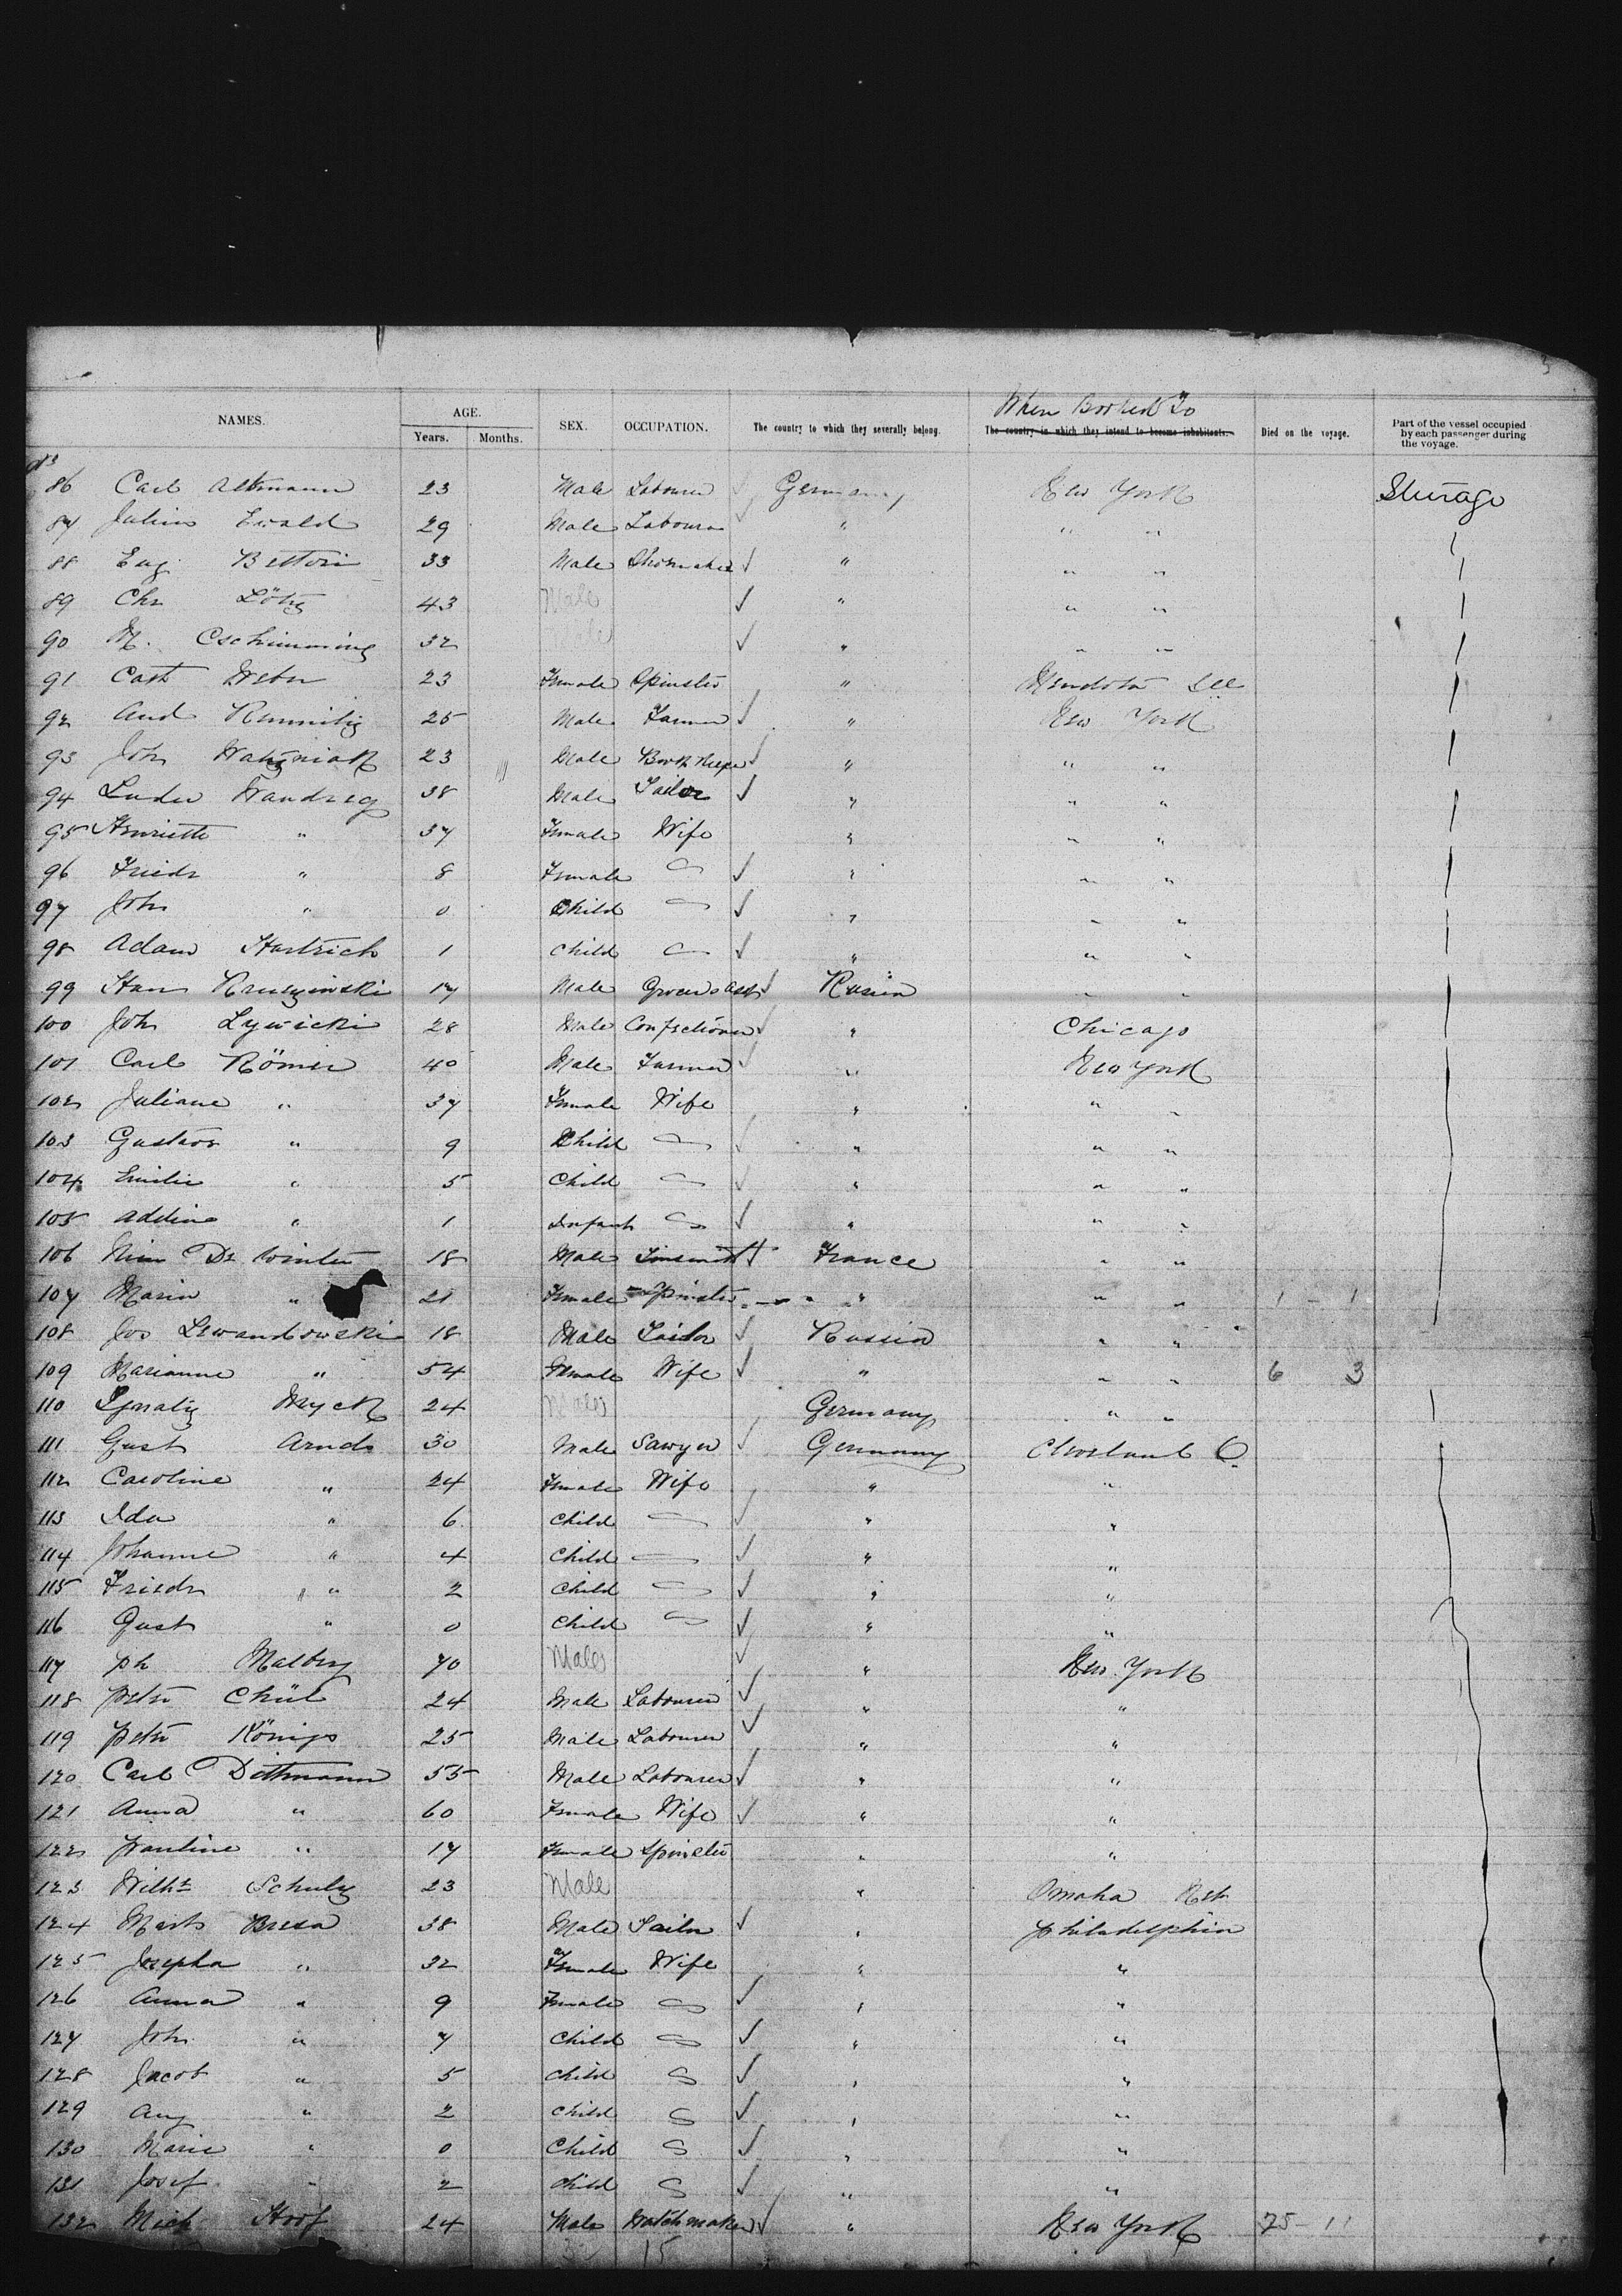 When Booked To
NAMES. AGE. SEX. OCCUPATION. The country to which they severally belong. The country in which they intend to become inhabitants. Died on the voyage. Part of the vessel occupied by each passenger during the voyage.
Years. Months.
86 Carl Altmann 23 Male Labourer Germany New York Steerage
87 Julius Ewald 29 Male Labourer " " "
88 Eug. Bettori 33 Male Shoemaker " " "
89 Chr 43 Male " " "
90 M. 32 Male " " "
91 Cath Weber 23 Female Spinster " Mendota Ill
92 And 25 Male Farmer " New York
93 Joh 23 Male Book Keeper " " "
94 Ludw 38 Male Tailor " " "
95 Henriette " 37 Female Wife " " "
96 Friedr " 8 Female " " "
97 Joh " 0 Child " " "
98 Adam Hartrich 1 Child " " "
99 Stan 17 Male Grocers Asst Russia " "
100 Joh Lywicki 28 Male Confectioner " Chicago
101 Carl Römer 40 Male Farmer " New York
102 Juliane " 37 Female Wife " " "
103 Gustav " 9 Child " " "
104 Emilie " 5 Child " " "
105 Adeline " 1 Infant " " "
106 De Winter 18 Male Tinsmith France " "
107 Maria " 21 Female Spinster " " " 1 - 1
108 Jos Lewandowski 18 Male Tailor Russia " "
109 Marianne " 54 Female Wife " " " 6 3
110 Ignatz Myck 24 Male Germany " "
111 Gust Arndt 30 Male Sawyer Germany Cleveland O
112 Caroline " 24 Female Wife " "
113 Ida " 6 Child " "
114 Johanne " 4 Child " "
115 Friedr " 2 Child " "
116 Gust " 0 Child " "
117 Ph Malberg 70 Male " New York
118 Peter 24 Male Labourer " "
119 Peter Königs 25 Male Labourer " "
120 Carl Dittmann 55 Male Labourer " "
121 Anna " 60 Female Wife " "
122 Pauline " 17 Female Spinster " "
123 Wilhm Schulz 23 Male " Omaha Neb
124 Mart Bresa 38 Male Tailor " Philadelphia
125 Josepha " 32 Female Wife " "
126 Anna " 9 Female " "
127 Joh " 7 Child " "
128 Jacob " 5 Child " "
129 Aug " 2 Child " "
130 Marie " 0 Child " "
131 Josef " 2 Child " "
132 Mich Hoof 24 Male Watchmaker " New York 75 - 11
15